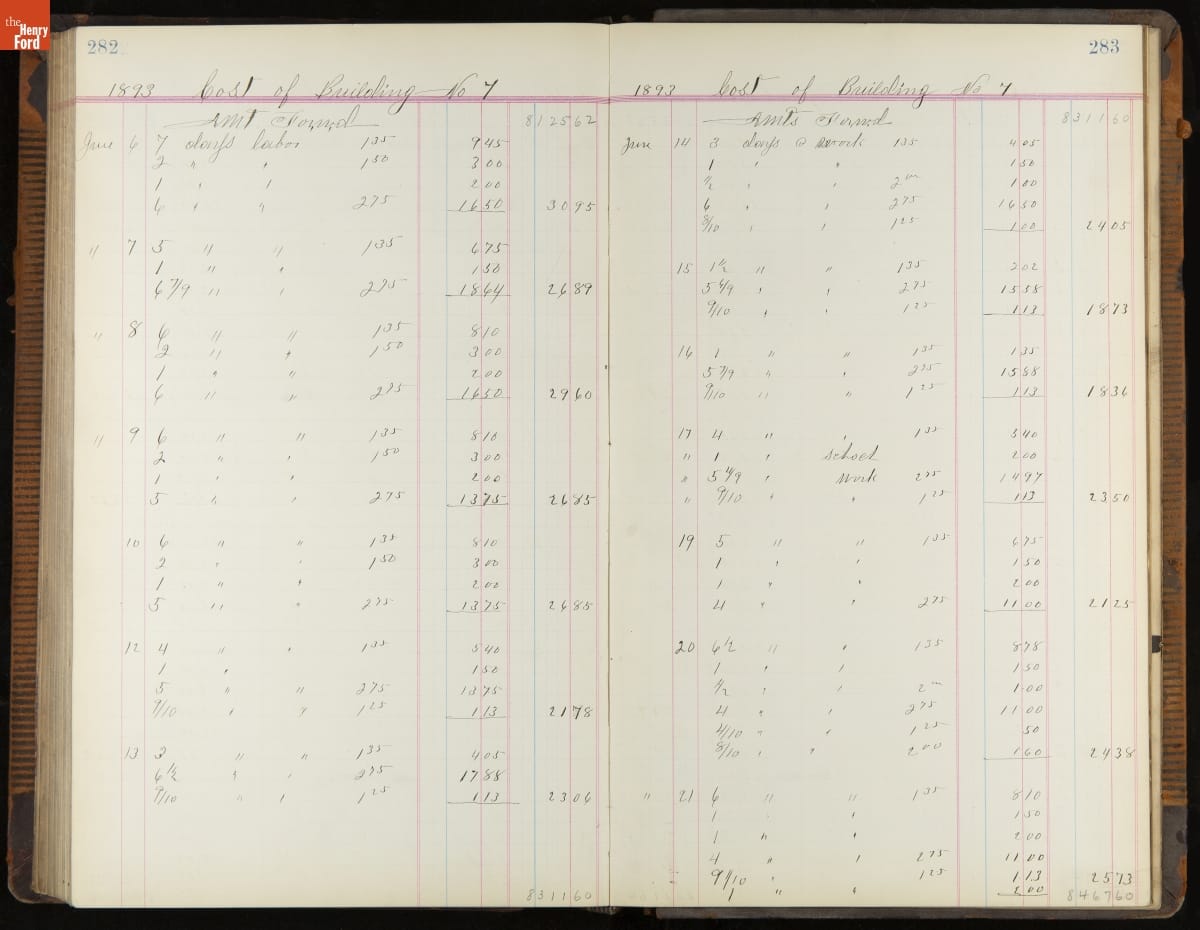 the Henry Ford
282
1893 Cost of Building No 7
Amt Forwd 812562
June 6 7 days labor 135 945
2 " " 150 300
1 " " 200
6 " " 275 1650 3095
" 7 5 " " 135 675
1 " " 150
6 7/9 " " 275 1864 2689
" 8 6 " " 135 810
2 " " 150 300
1 " " 200
6 " " 275 1650 2960
" 9 6 " " 135 810
2 " " 150 300
1 " " 200
5 " " 275 1375 2685
10 6 " " 135 810
2 " " 150 300
1 " " 200
5 " " 275 1375 2685
12 4 " " 135 540
1 " 150
5 " " 275 1375
9/10 " " 125 113 2178
13 3 " " 135 405
6 1/2 " " 275 1788
9/10 " " 125 113 2306
831160
283
1893 Cost of Building No 7
Amts Forwd 831160
June 14 3 days @ work 135 405
1 " " 150
1/2 " " 2 00 100
6 " " 275 1650
8/10 " " 125 100 2405
15 1 1/2 " " 135 202
5 6/9 " " 275 1558
9/10 " " 125 113 1873
16 1 " " 135 135
5 7/9 " " 275 1588
9/10 " " 125 113 1836
17 4 " " 135 540
" 1 " School 200
" 5 4/9 " Work 275 1497
" 9/10 " " 125 113 2350
19 5 " " 135 675
1 " " 150
1 " " 200
4 " " 275 1100 2125
20 6 1/2 " " 135 878
1 " " 150
1/2 " " 2 00 100
4 " " 275 1100
4/10 " " 125 50
8/10 " " 200 160 2438
" 21 6 " " 135 810
1 " " 150
1 " " 200
4 " " 275 1100
9/10 " " 125 113 2573
1 " " 200
846760